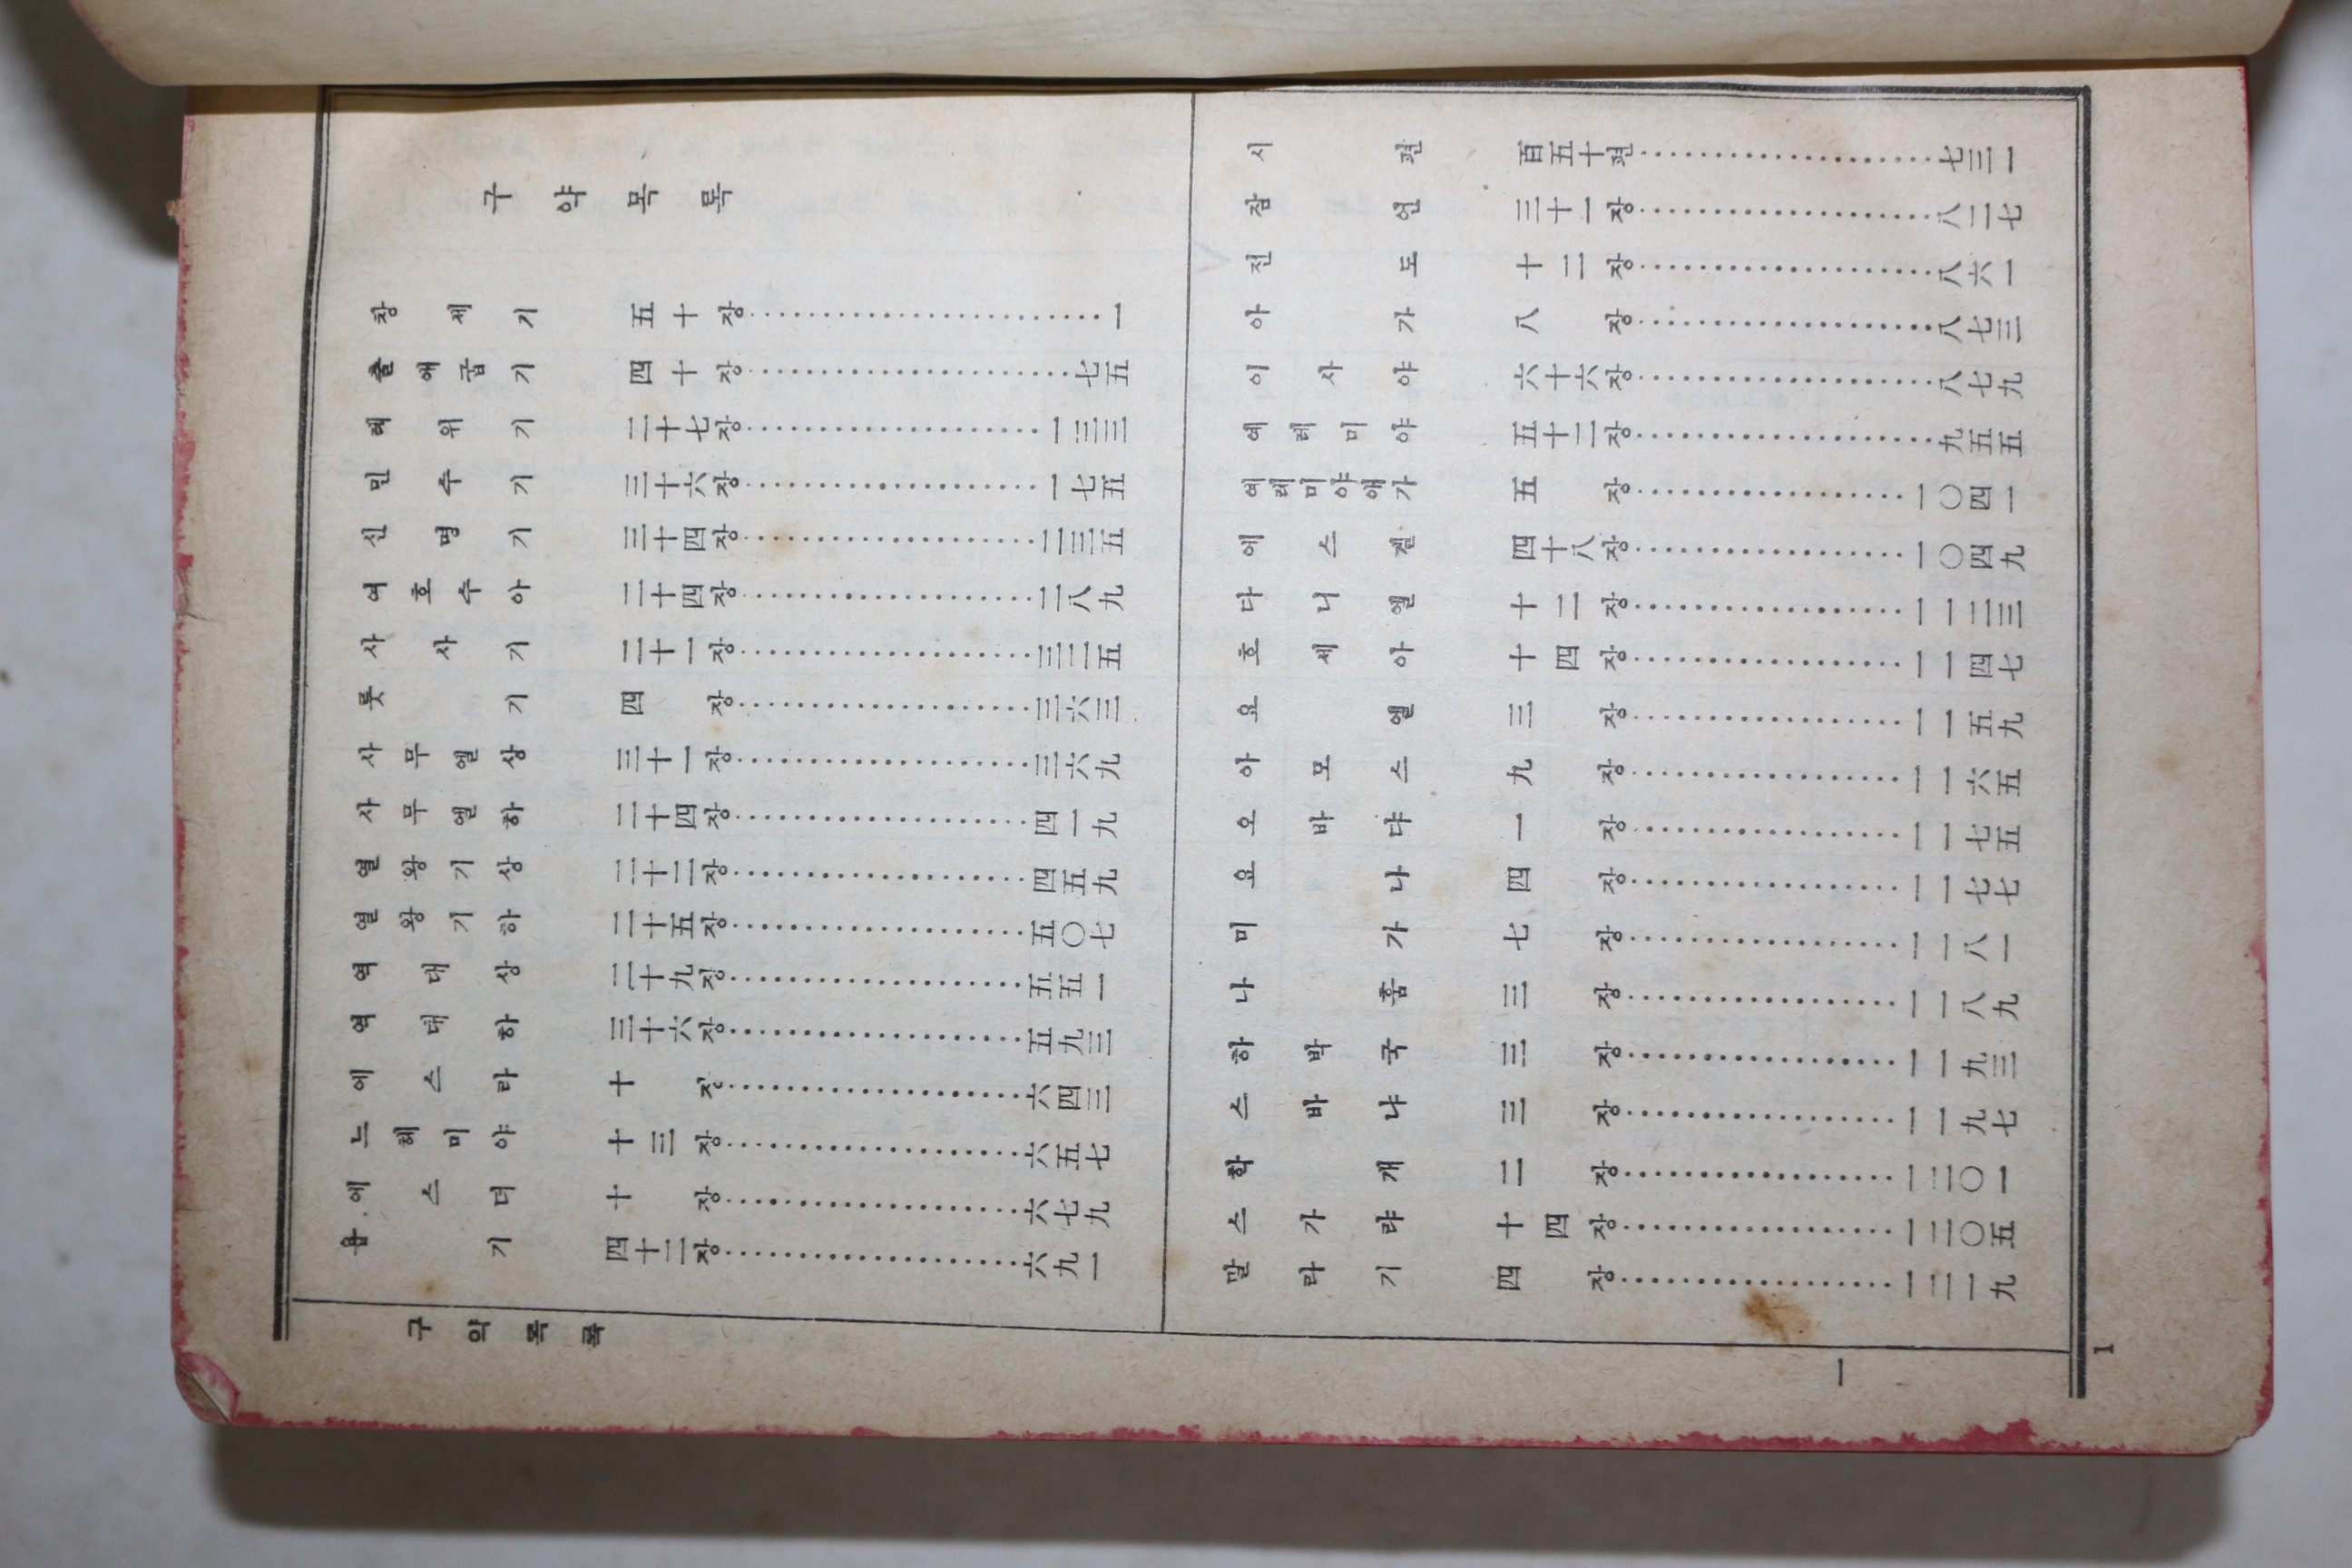 구약목록
창세기 五十장……………一
출애굽기 四十장……………七五
레위기 二十七장……………一三三
민수기 三十六장……………一七五
신명기 三十四장……………二三五
여호수아 二十四장……………二八九
사사기 二十一장……………三二五
룻기 四장……………三六三
사무엘상 三十一장……………三六九
사무엘하 二十四장……………四一九
열왕기상 二十二장……………四五九
열왕기하 二十五장……………五〇七
역대상 二十九장……………五五一
역대하 三十六장……………五九三
에스라 十장……………六四三
느헤미야 十三장……………六五七
에스더 十장……………六七九
욥기 四十二장……………六九一
시편 百五十편……………七三一
잠언 三十一장……………八二七
전도 十二장……………八六一
아가 八장……………八七三
이사야 六十六장……………八七九
예레미야 五十二장……………九五五
예레미야애가 五장……………一〇四一
에스겔 四十八장……………一〇四九
다니엘 十二장……………一一二三
호세아 十四장……………一一四七
요엘 三장……………一一五九
아모스 九장……………一一六五
오바댜 一장……………一一七五
요나 四장……………一一七七
미가 七장……………一一八一
나훔 三장……………一一八九
하박국 三장……………一一九三
스바냐 三장……………一一九七
학개 二장……………一二〇一
스가랴 十四장……………一二〇五
말라기 四장……………一二一九
구약목록
一
1